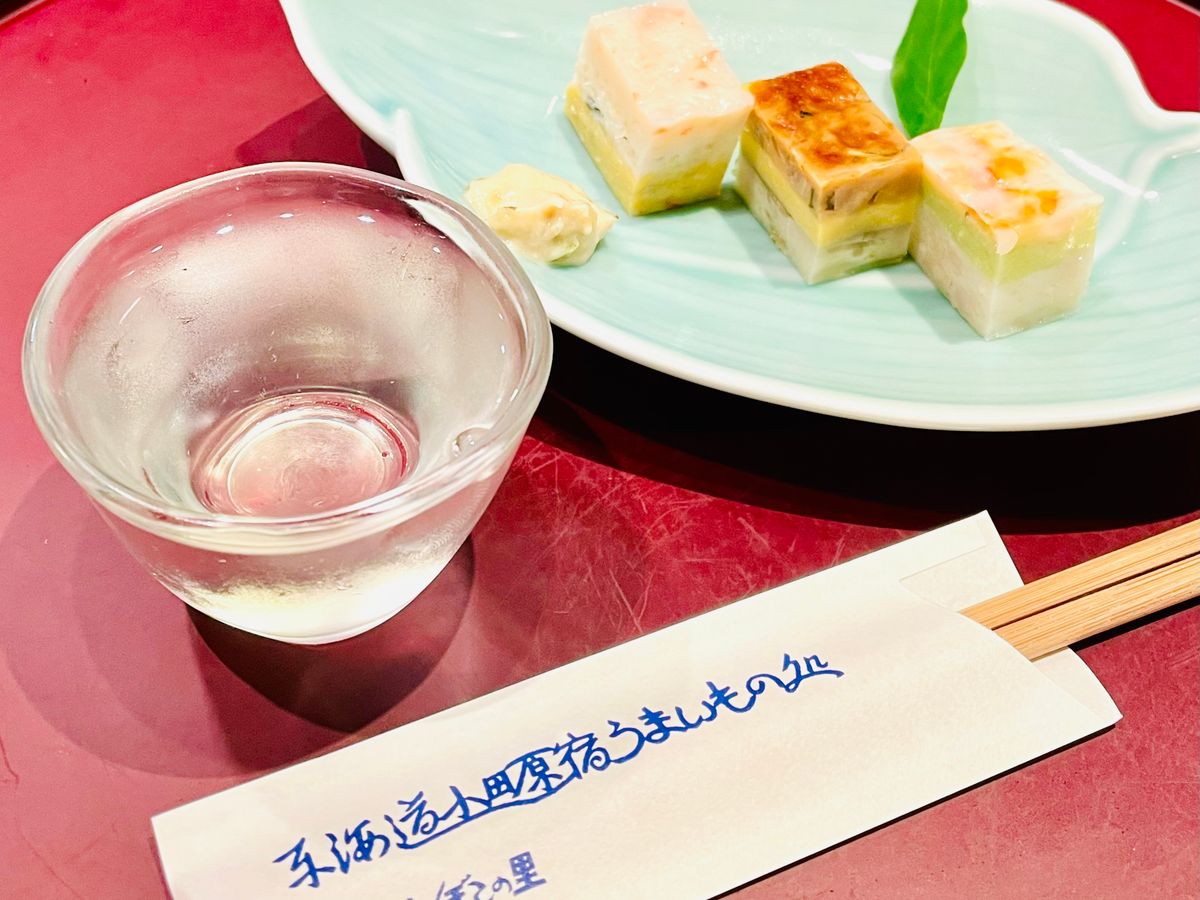 東海道小田原宿うまいもの処
ぼこの里